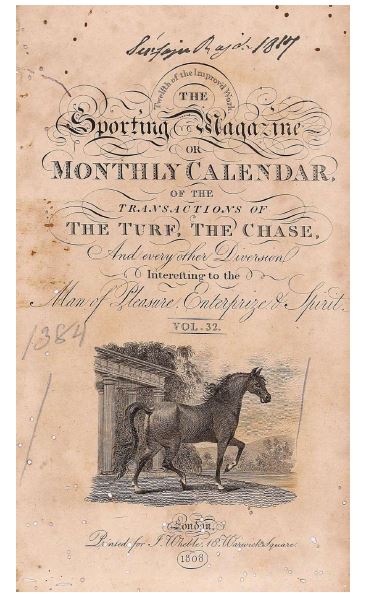 1817
Twelfth of the Improv'd Work
THE
Sporting Magazine
OR
MONTHLY CALENDAR,
OF THE
TRANSACTIONS OF
THE TURF, THE CHASE,
And every other Diversion
Interesting to the
Man of Pleasure, Enterprize & Spirit.
VOL. 32.
1384
London,
Printed for J. Wheble, 18, Warwick Square.
1808